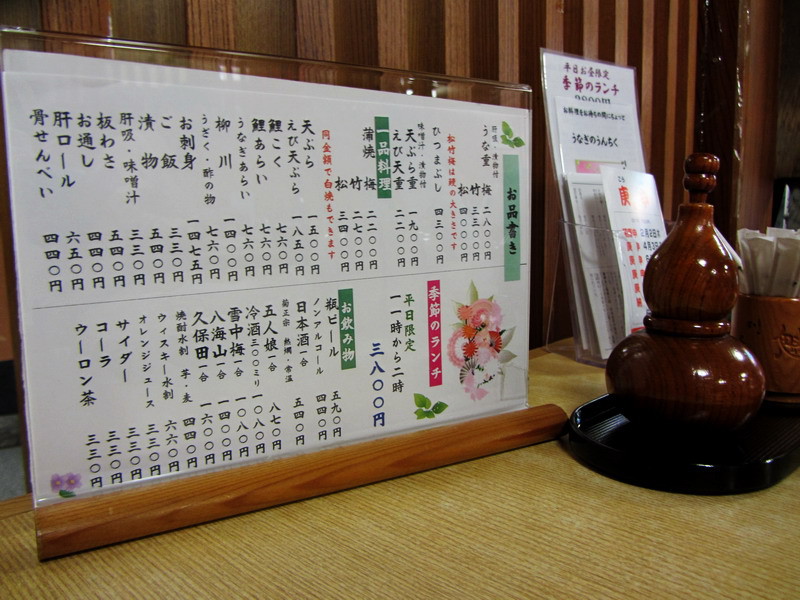 お品書き
肝吸、漬物付
うな重 梅 二八〇〇円
竹 三三〇〇円
松
松竹梅は鰻の大きさです
ひつまぶし 四三〇〇円
味噌汁・漬物付
天ぷら重 一九〇〇円
えび天重 二二〇〇円
一品料理
蒲焼 梅 二二〇〇円
竹 二七〇〇円
松 三四〇〇円
同金額で白焼もできます
天ぷら 一五〇〇円
えび天ぷら 一八五〇円
鯉こく 七六〇円
鯉あらい 七六〇円
うなぎあらい
柳川 一四〇〇円
うざく・酢の物 七六〇円
お刺身 一四七五円
ご飯 三三〇円
漬物 五四〇円
肝吸・味噌汁 三三〇円
板わさ 五四〇円
お通し 四四〇円
肝ロール 六五〇円
骨せんべい 四四〇円
季節のランチ
平日限定
一一時から二時
三八〇〇円
お飲み物
瓶ビール 五九〇円
ノンアルコール 四四〇円
日本酒一合 五四〇円
菊正宗 熱燗・常温
五人娘一合 八七〇円
冷酒三〇〇ミリ 一〇八〇円
雪中梅一合 一〇八〇円
八海山一合 一四〇〇円
久保田一合 一六〇〇円
焼酎水割 芋・麦 四四〇円
ウィスキー水割 六六〇円
オレンジジュース 三三〇円
サイダー 三三〇円
コーラ 三三〇円
ウーロン茶 三三〇円
平日お昼限定
季節のランチ
お料理をお待ちの間にちょっと
うなぎのうんちく
庚